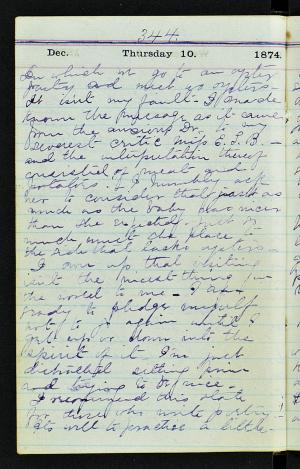 344
Dec. Thursday 10. 1874
In which we go to an oyster
party and meet no oysters –
It isn't my fault – I made
known the message as it came
from the
severest critic Miss E. J. B. –
and the interpretation thereof
consisted of meat and
potatoes. I must ask
her to consider that
much as the baby
than the
much must the place
the side that lacks oysters –
I own up that visiting
isn't the nicest thing in
the world to me – I am
ready to pledge myself
not to go again until I
get up or down into the
spirit of it. I'm just
distracted sitting prim
and trying to be nice.
I recommend this state
for those who write poetry –
it's well to practice a little –